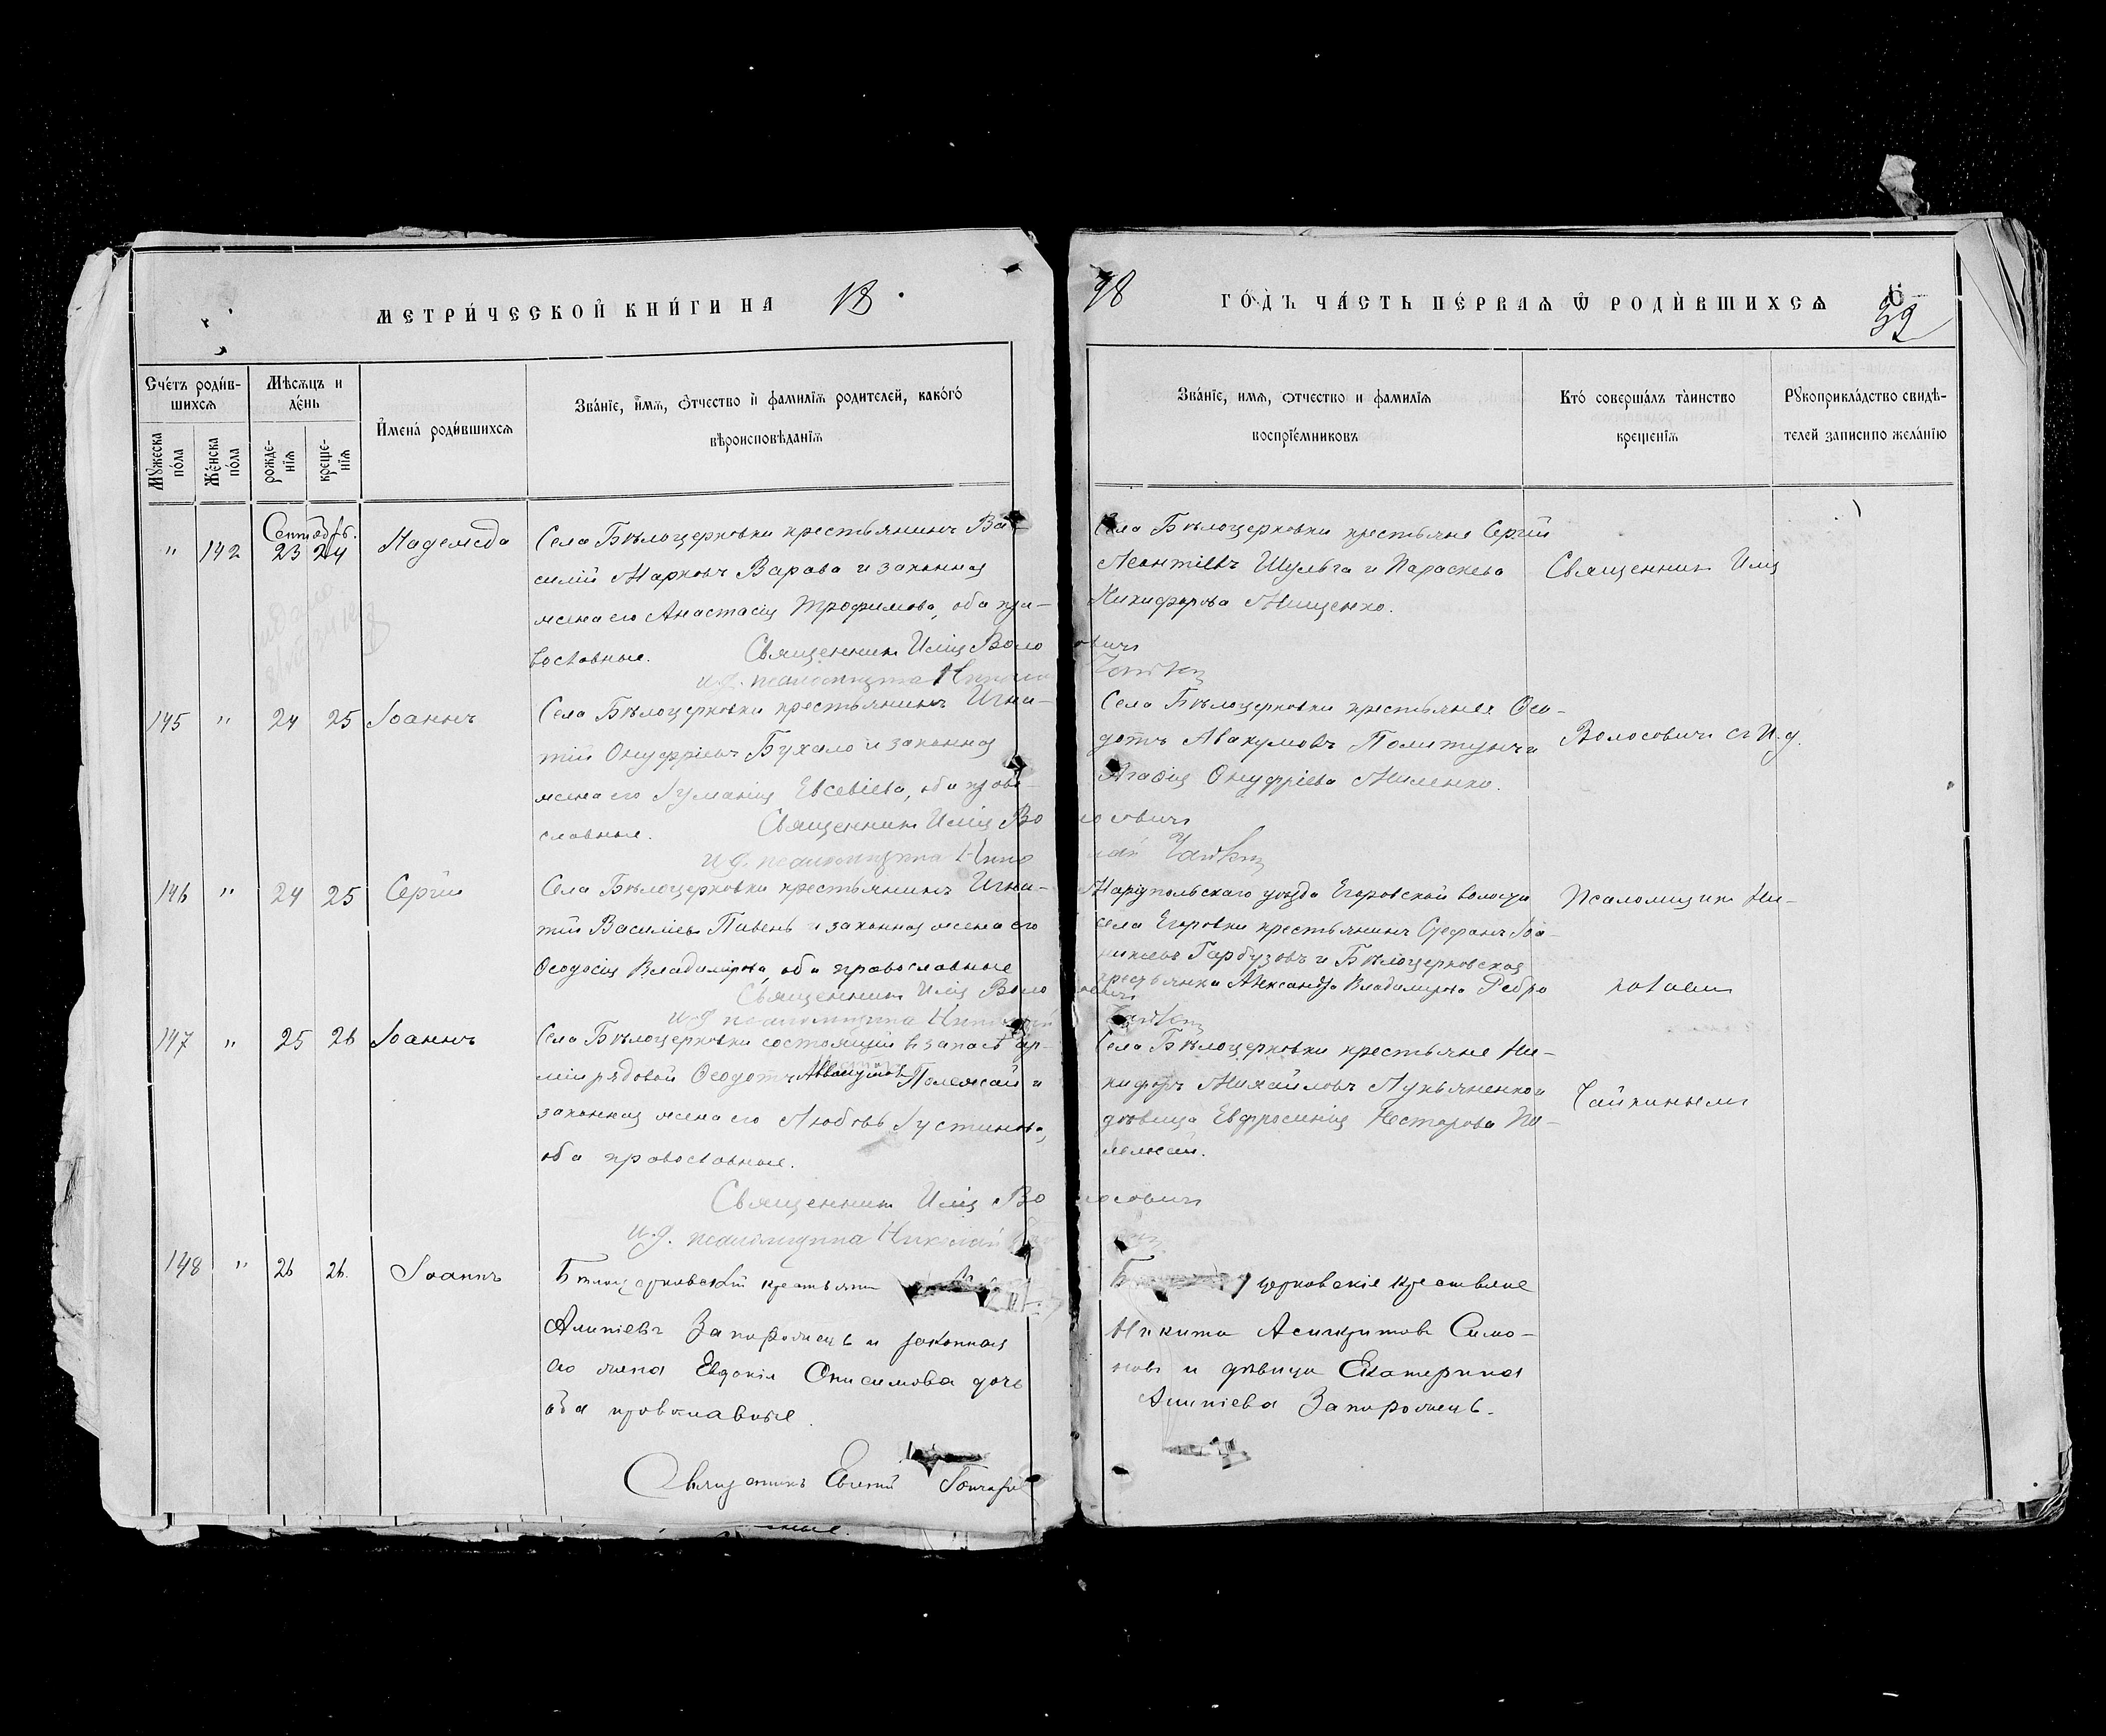 МЕТРИ́ЧЕСКОЙ КНИ́ГИ НА 18
98 ГО́ДЪ ЧА́СТЬ ПЕ́РВАѦ Ѿ РОДИ́ВШИХСѦ
39
Сче́тъ роди́в-
шихсѧ
Мѣсѧцъ и
де́нь
Имена̀ роди́вшихсѧ
Зва́нїе, имѧ, ѻтчество и фамилїѧ родителей, како́гѡ
вѣроисповѣданїѧ
Мꙋжеска
по́ла
Же́нска
по́ла
рожде-
нїѧ
креще-
нїѧ
Зва́нїе, имѧ, ѻтчество и фамилїѧ
воспрїе́мниковъ
Кто̀ соверша́лъ та̀инство
крещенїѧ
Рꙋкоприкла́дство свидѣ-
телей записи по жела́нїю
Сентябрь.
" 142 23 24 Надежда
Села Бѣлоцерковки крестьянинъ Ва-
силій Марковъ Варава и законная
жена его Анастасія Трофимова, оба пра-
вославные.
Священникъ Илія Волосовичъ
и.д. псаломщика Николай
Села Бѣлоцерковки крестьяне Сергій
Леонтіевъ Шульга и Параскева
Никифорова Мищенко.
Священник Илія
145 " 24 25 Іоаннъ
Села Бѣлоцерковки крестьянинъ Игна-
тій Онуфріевъ Бухало и законная
жена его Іуліанія Евсевіева, оба право-
славные.
Священникъ Илія Волосовичъ
и.д. псаломщика Николай
Села Бѣлоцерковки крестьяне Ѳео-
дотъ Авакумовъ
Агафія Онуфріева
Волосовичъ съ И.д.
146 " 24 25 Сергій
Села Бѣлоцерковки крестьянинъ Игна-
тій Василіевъ Пивень и законная жена его
Ѳеодосія Владимірова, оба православные
Священникъ Илія Волосовичъ
и.д. псаломщика Николай
Маріупольскаго уѣзда Егоровской волости
села Егоровки крестьянинъ Стефанъ Іоа-
никіевъ Гарбузовъ и Бѣлоцерковская
крестьянка Александра Владимірова Ребро
Псаломщик Ни-
колаем
147 " 25 26 Іоаннъ
Села Бѣлоцерковки состоящій в запасѣ ар-
міи рядовой Ѳеодотъ Аввакумовъ Полежай и
законная жена его Любовь Іустинова,
оба православные.
Священникъ Илія Волосовичъ
и.д. псаломщика Николай
Села Бѣлоцерковки крестьяне Ни-
кифоръ Михайловъ Лукьяненко и
дѣвица Евфросинія Несторова По-
лежай.
Чайкиным
148 " 26 26. Іоаннъ
Бѣлоцерковскій крестьянин
Алипіевъ Запорожецъ и законная
его жена Евдокія Онисимова дочь
оба православные.
Священникъ Евгеній
церковскіе крестьяне
Никита Асинкритовъ Симо-
новъ и дѣвица Екатерина
Алипіева Запорожецъ.